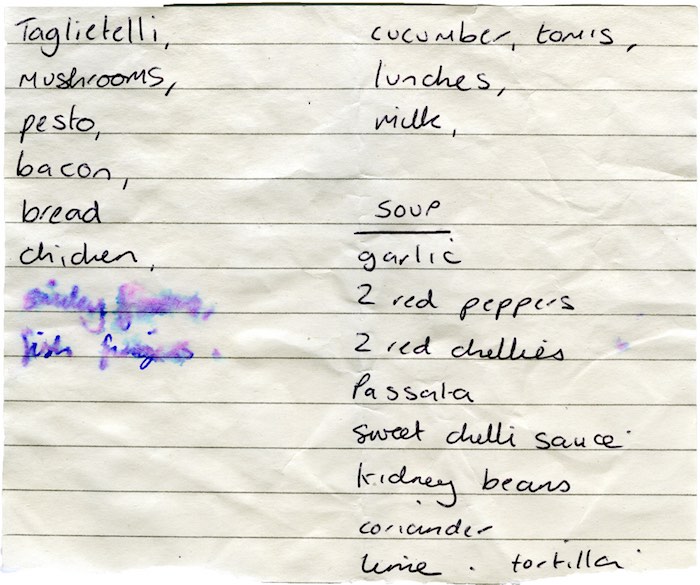 Taglietelli,
mushrooms,
pesto,
bacon,
bread
chicken,
fish fingers.
cucumber, toms,
lunches,
milk,
soup
garlic
2 red peppers
2 red chellies
Passata
sweet chelli sauce
kidney beans
coriander
lime . tortilla